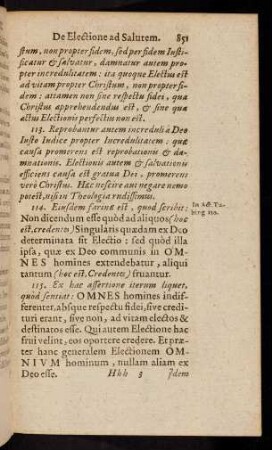 De Electione ad Salutem. 851
stum, non propter fidem. sed per fidem Iusti-
ficatur & salvatur, damnatur autem pro-
pter incredulitatem: ita quoque Electus est
ad vitam propter Christum, non propter fi-
dem: attamen non sine respectu fidei, quâ
Christus apprehendendus est, & sine quâ
actus Electionis perfectus non est.
113. Reprobantur autem increduli à Deo
Iusto Iudice propter Incredulitatem: quæ
causa promerens est reprobationis & da-
mnationis. Electionis autem & salvationis
efficiens causa est gratua Dei, promerens
verò Christus. Hæc nescire aut negare nemo
potest, nisi in Theologia rudissimus.
114. Eiusdem farinæ est, quod scribit:
Non dicendum esse quòd ad aliquos (hoc
est, credentes) Singularis quædam ex Deo
determinata sit Electio: sed quòd illa
ipsa, quæ ex Deo communis in OM-
NES homines extendebatur, aliqui
tantum (hoc est, Credentes) fruantur.
In Act. Tu-
bing. 110.
115. Ex hac assertione iterum liquet,
quòd sentiat: OMNES homines indif-
ferenter, absque respectu fidei, sive credi-
turi erant, sive non, ad vitam electos &
destinatos esse. Qui autem Electione hac
frui velint, eos oportere credere. Et præ-
ter hanc generalem Electionem OM-
NIUM hominum, nullam aliam ex
Deo esse.
Hhh 3
Idem